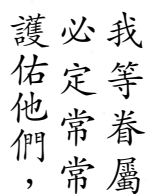 我等眷屬
必定常常
護佑他們，